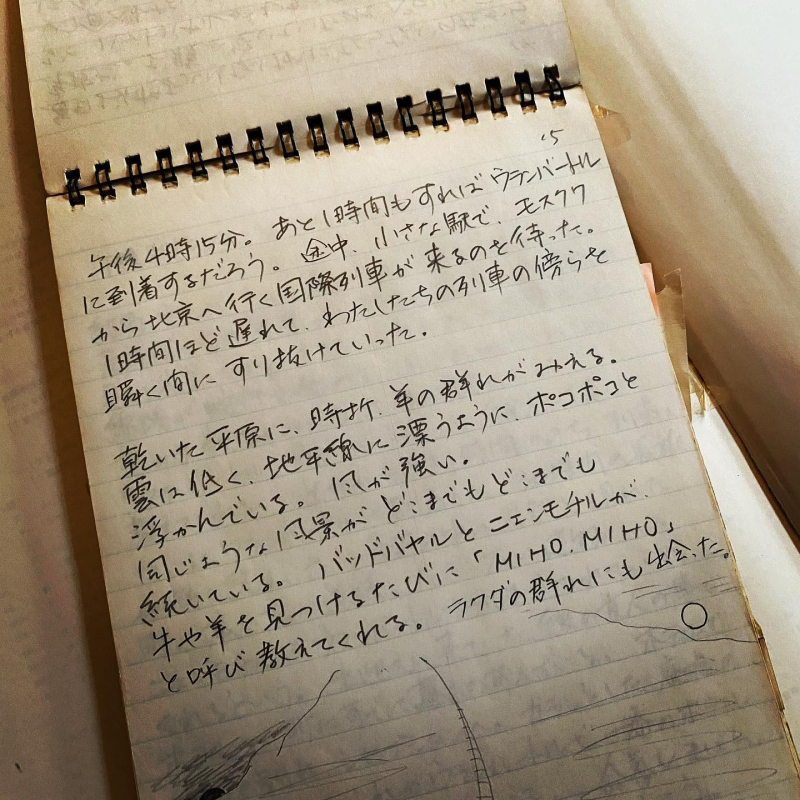 '5
午後4時15分。あと1時間もすればウランバートル
に到着するだろう。途中、小さな駅で、モスクワ
から北京へ行く国際列車が来るのを待った。
1時間ほど遅れて、わたしたちの列車の傍らを
瞬く間にすり抜けていった。
乾いた平原に、時折、羊の群れがみえる。
雲は低く、地平線に漂うように、ポコポコと
浮かんでいる。風が強い。
同じような風景がどこまでもどこまでも
続いている。バッドバヤルとニェンモチルが、
牛や羊を見つけるたびに「MIHO、MIHO」
と呼び教えてくれる。ラクダの群れにも出会った。